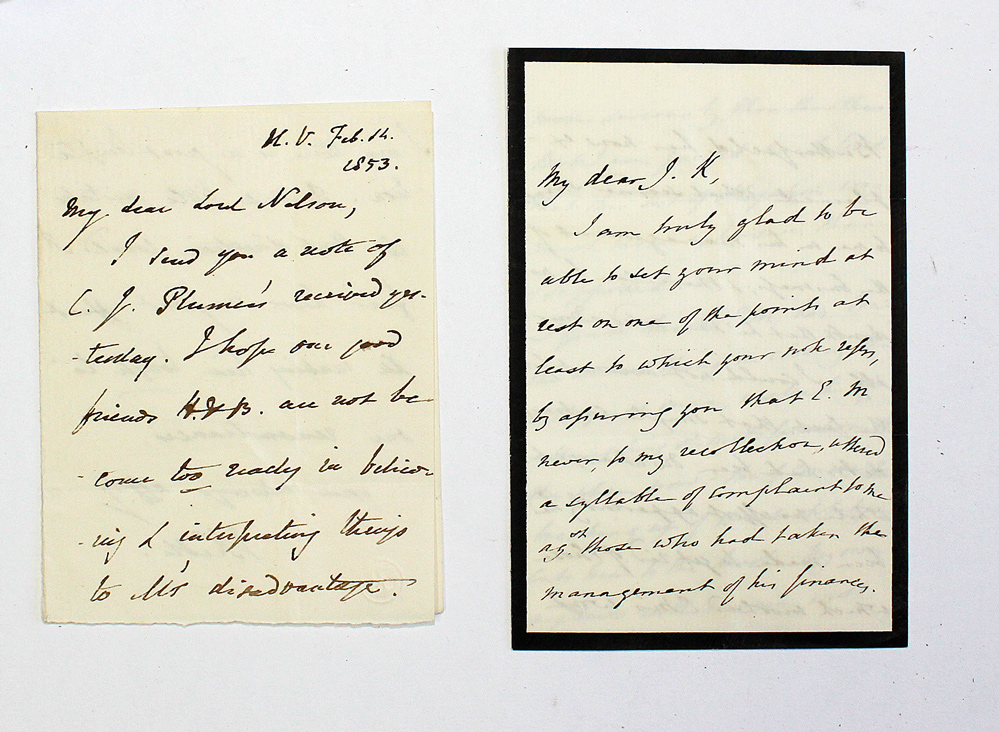 H. V. Feb. 14.
1853.
My dear Lord Nelson,
I send you a note of
C. J. Plumer's received yes-
-terday. I hope our good
friends H. & B. are not be
-come too ready in believ-
-ing & interpreting things
to M's disadvantage.
My dear J. K,
I am truly glad to be
able to set your mind at
rest on one of the points at
least to which your note refers,
by assuring you that E. M
never, to my recollection, uttered
a syllable of complaint to me
agst. those who had taken the
management of his finances.